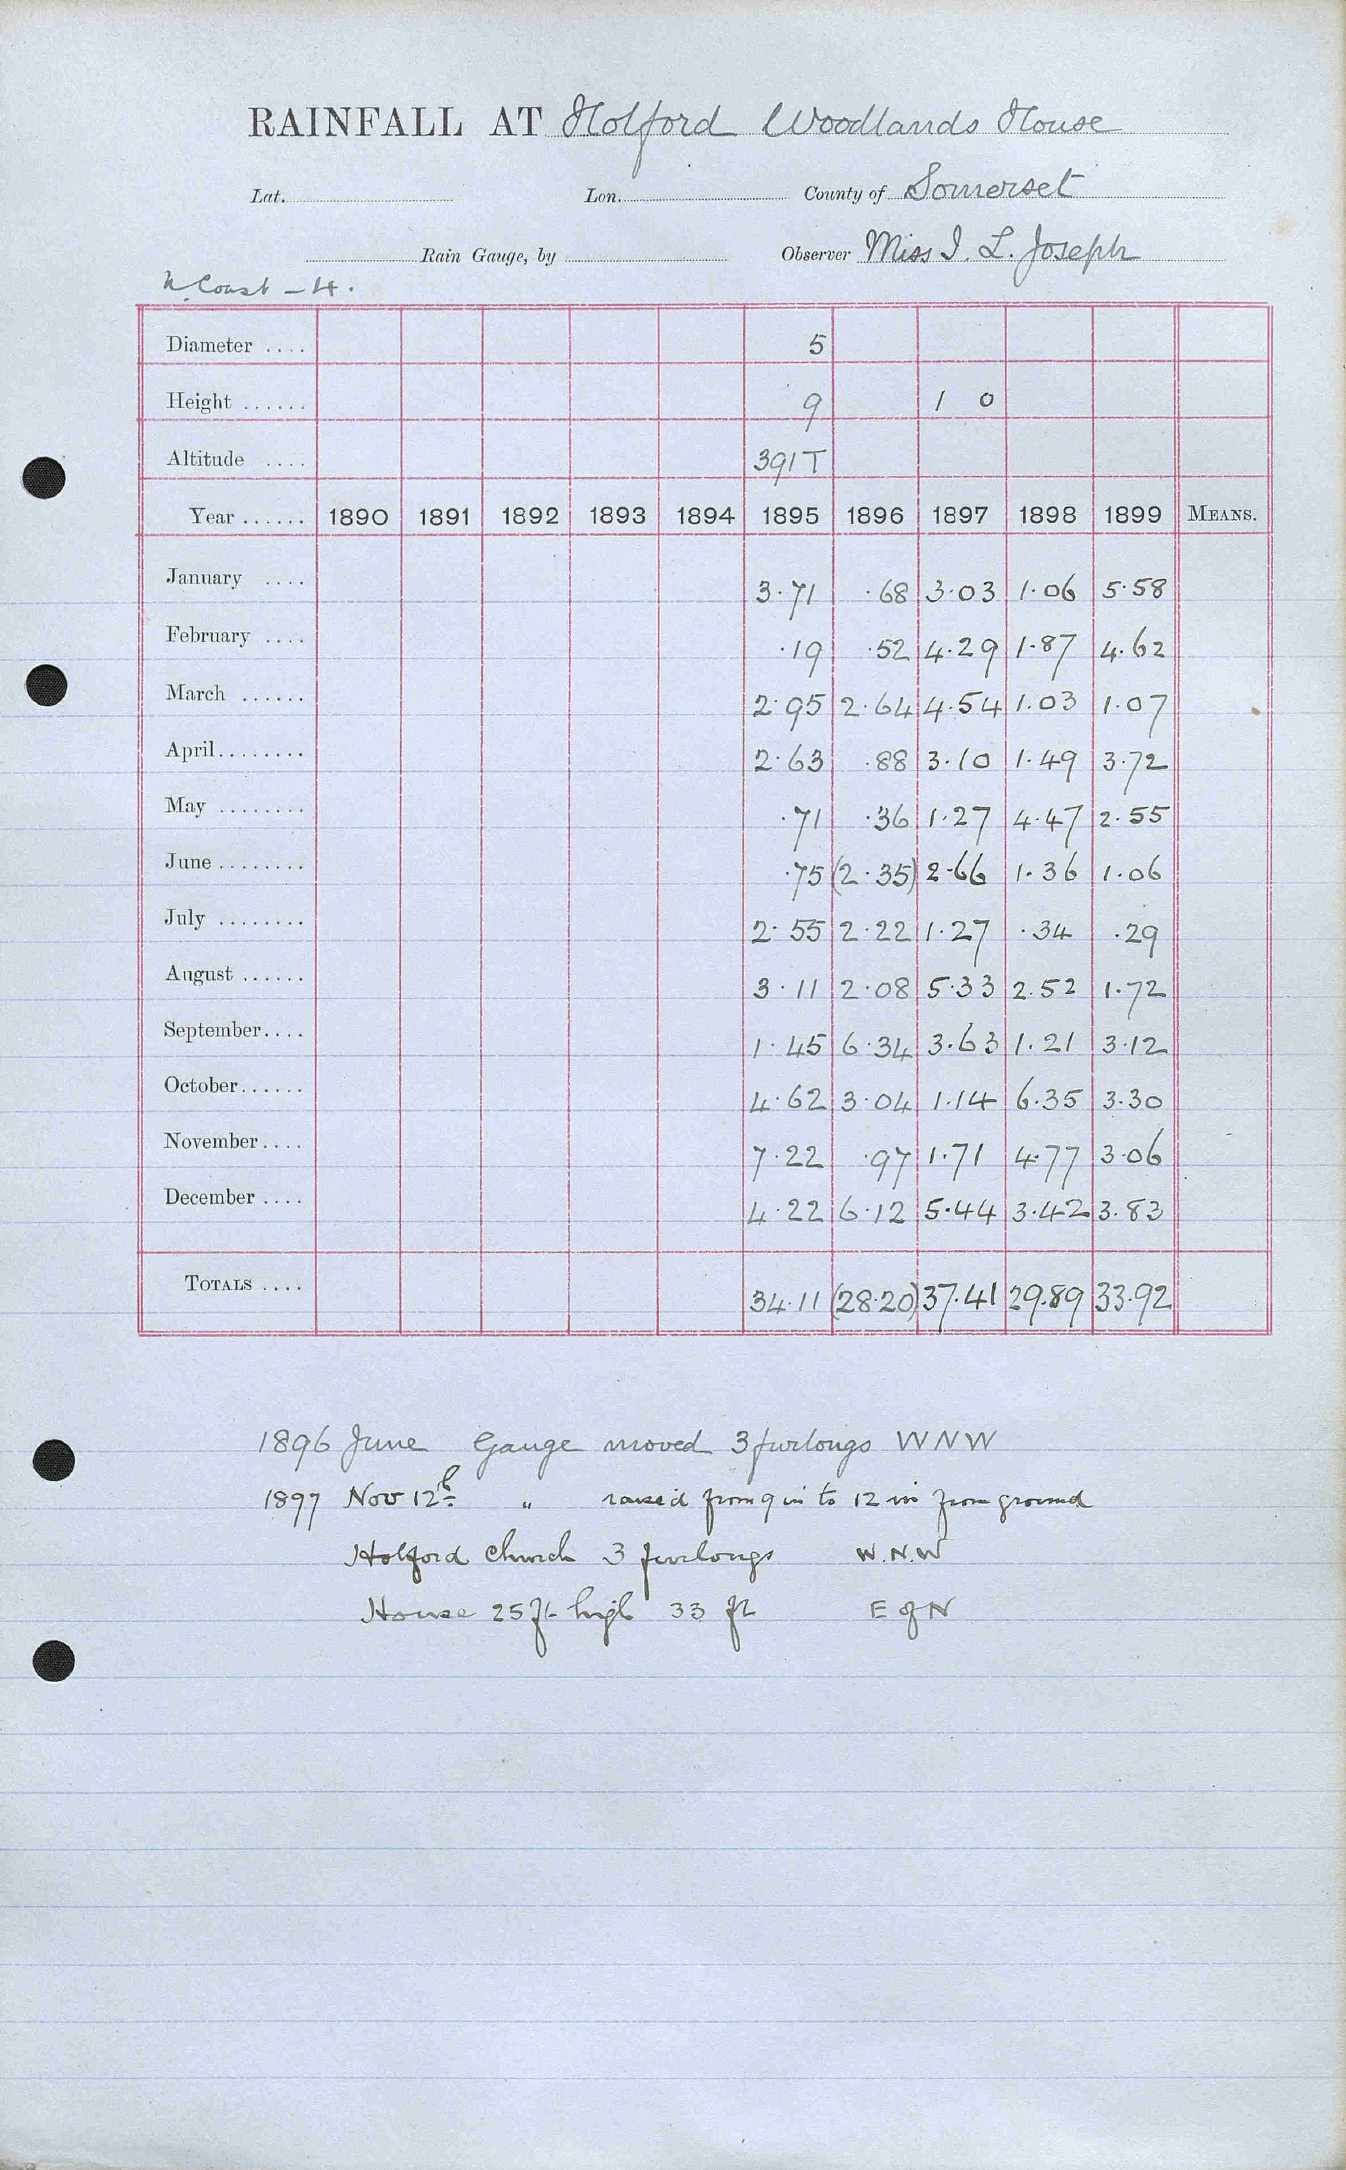 RAINFALL AT Holford Woodlands House
Lat. Lon. County of Somerset
Rain Gauge, by Observer Miss I. L. Joseph
N. Coast - 4.
Diameter .... 5
Height ...... 9 1 0
Altitude .... 391 T
Year ...... 1890 1891 1892 1893 1894 1895 1896 1897 1898 1899 MEANS.
January .... 3.71 .68 3.03 1.06 5.58
February .... .19 .52 4.29 1.87 4.62
March ...... 2.95 2.64 4.54 1.03 1.07
April........ 2.63 .88 3.10 1.49 3.72
May ........ .71 .36 1.27 4.47 2.55
June ........ .75 (2.35) 2.66 1.36 1.06
July ........ 2.55 2.22 1.27 .34 .29
August ...... 3.11 2.08 5.33 2.52 1.72
September.... 1.45 6.34 3.63 1.21 3.12
October...... 4.62 3.04 1.14 6.35 3.30
November.... 7.22 .97 1.71 4.77 3.06
December .... 4.22 6.12 5.44 3.42 3.83
TOTALS .... 34.11 (28.20) 37.41 29.89 33.92
1896 June Gauge moved 3 furlongs WNW
1897 Nov 12th " raised from 9 in to 12 in from ground
Holford Church 3 furlongs W.N.W
House 25 ft high 33 ft E of N